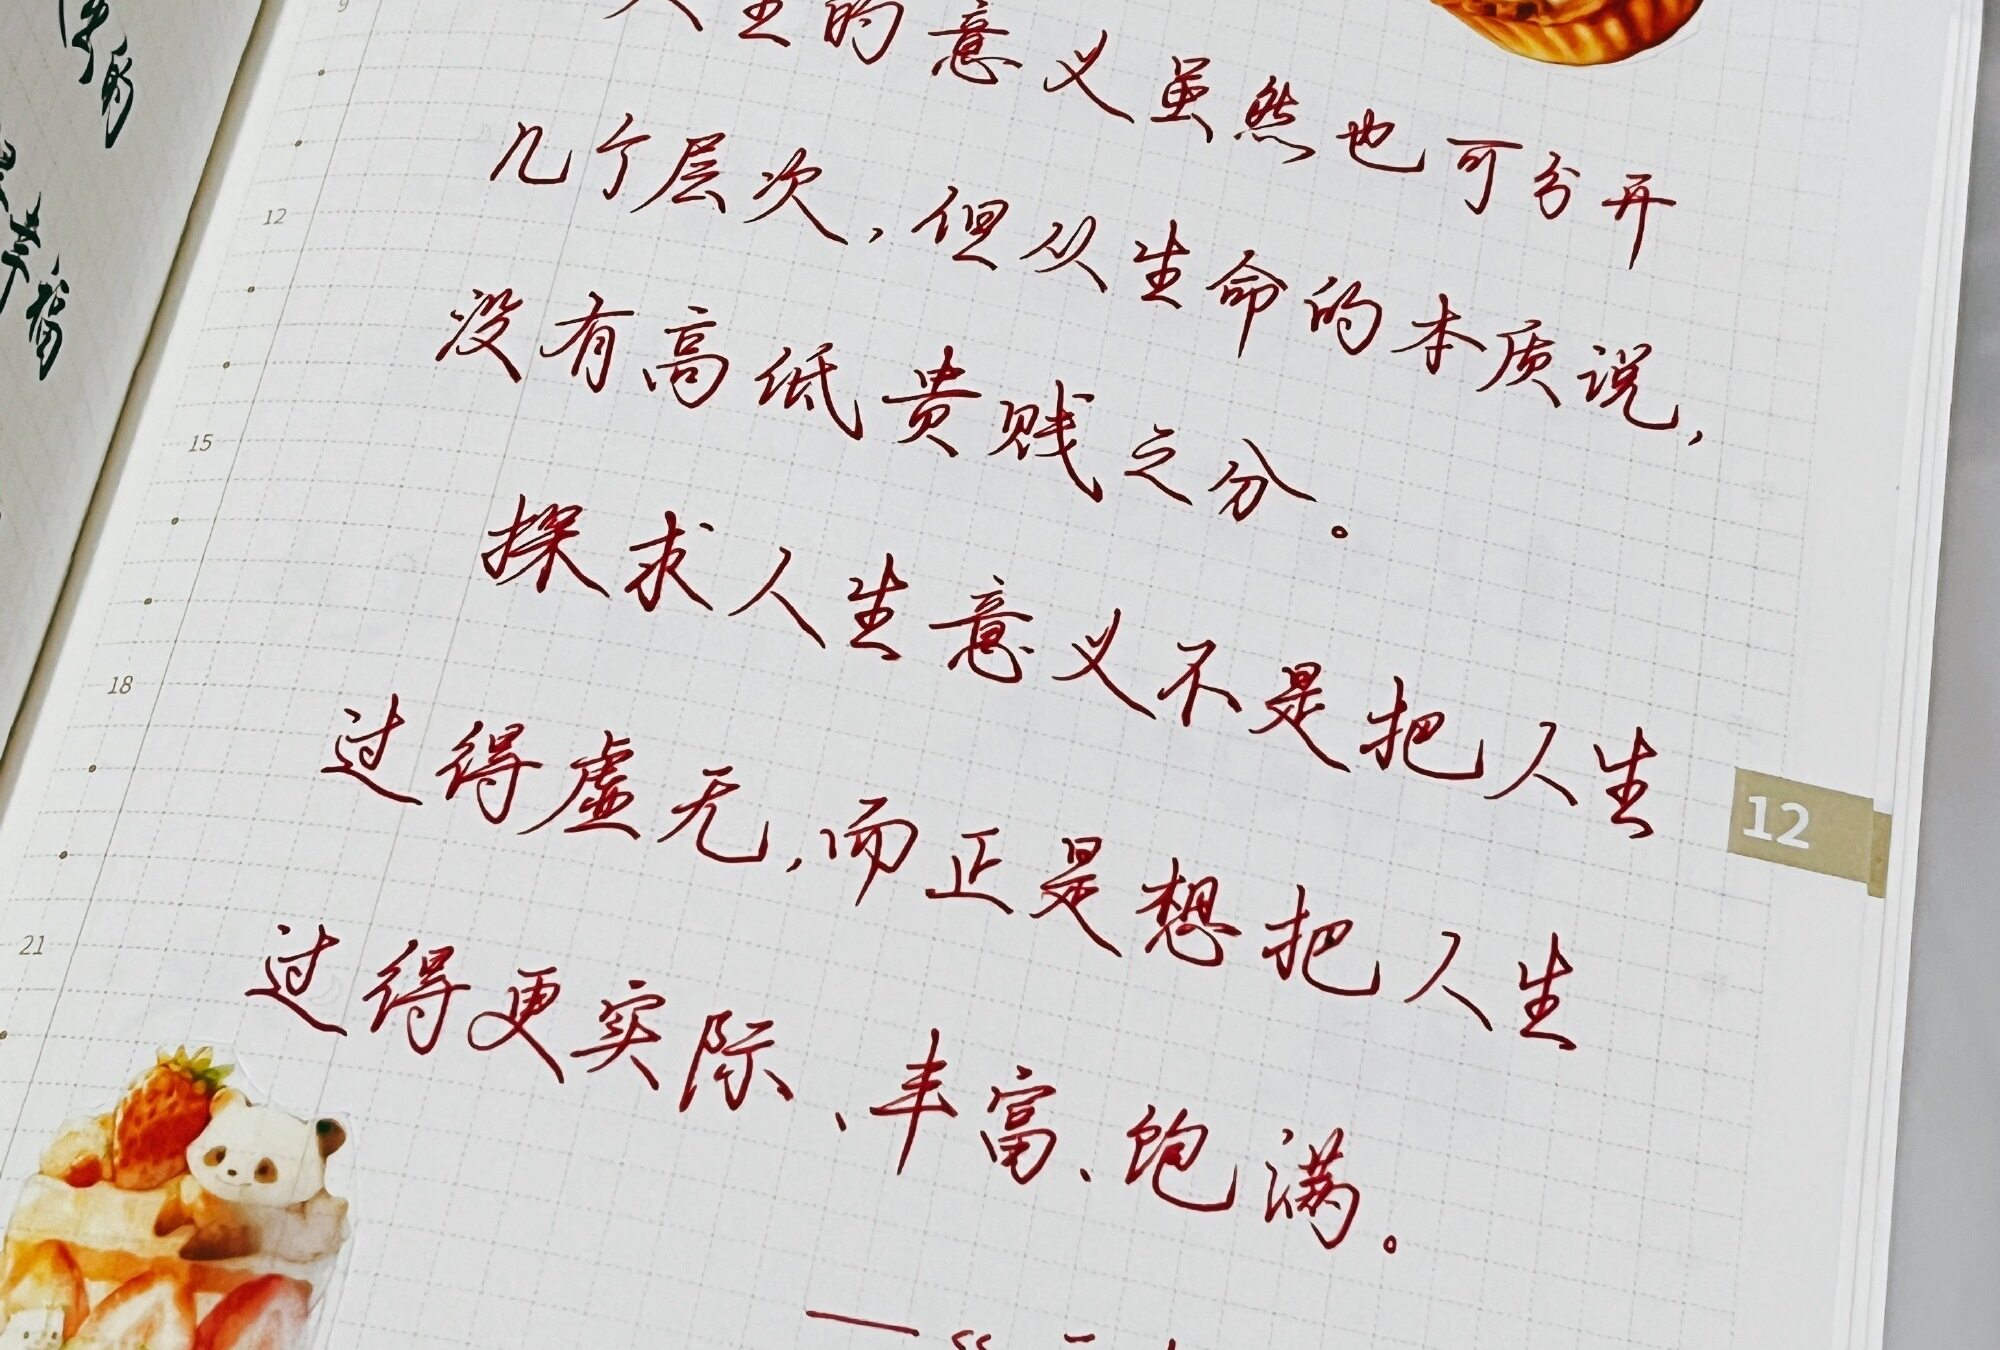 9
人生的意义虽然也可分开
几个层次，但从生命的本质说，
12
没有高低贵贱之分。
15
探求人生意义不是把人生
18
过得虚无，而正是想把人生
12
过得更实际、丰富、饱满。
21
——“
幸福